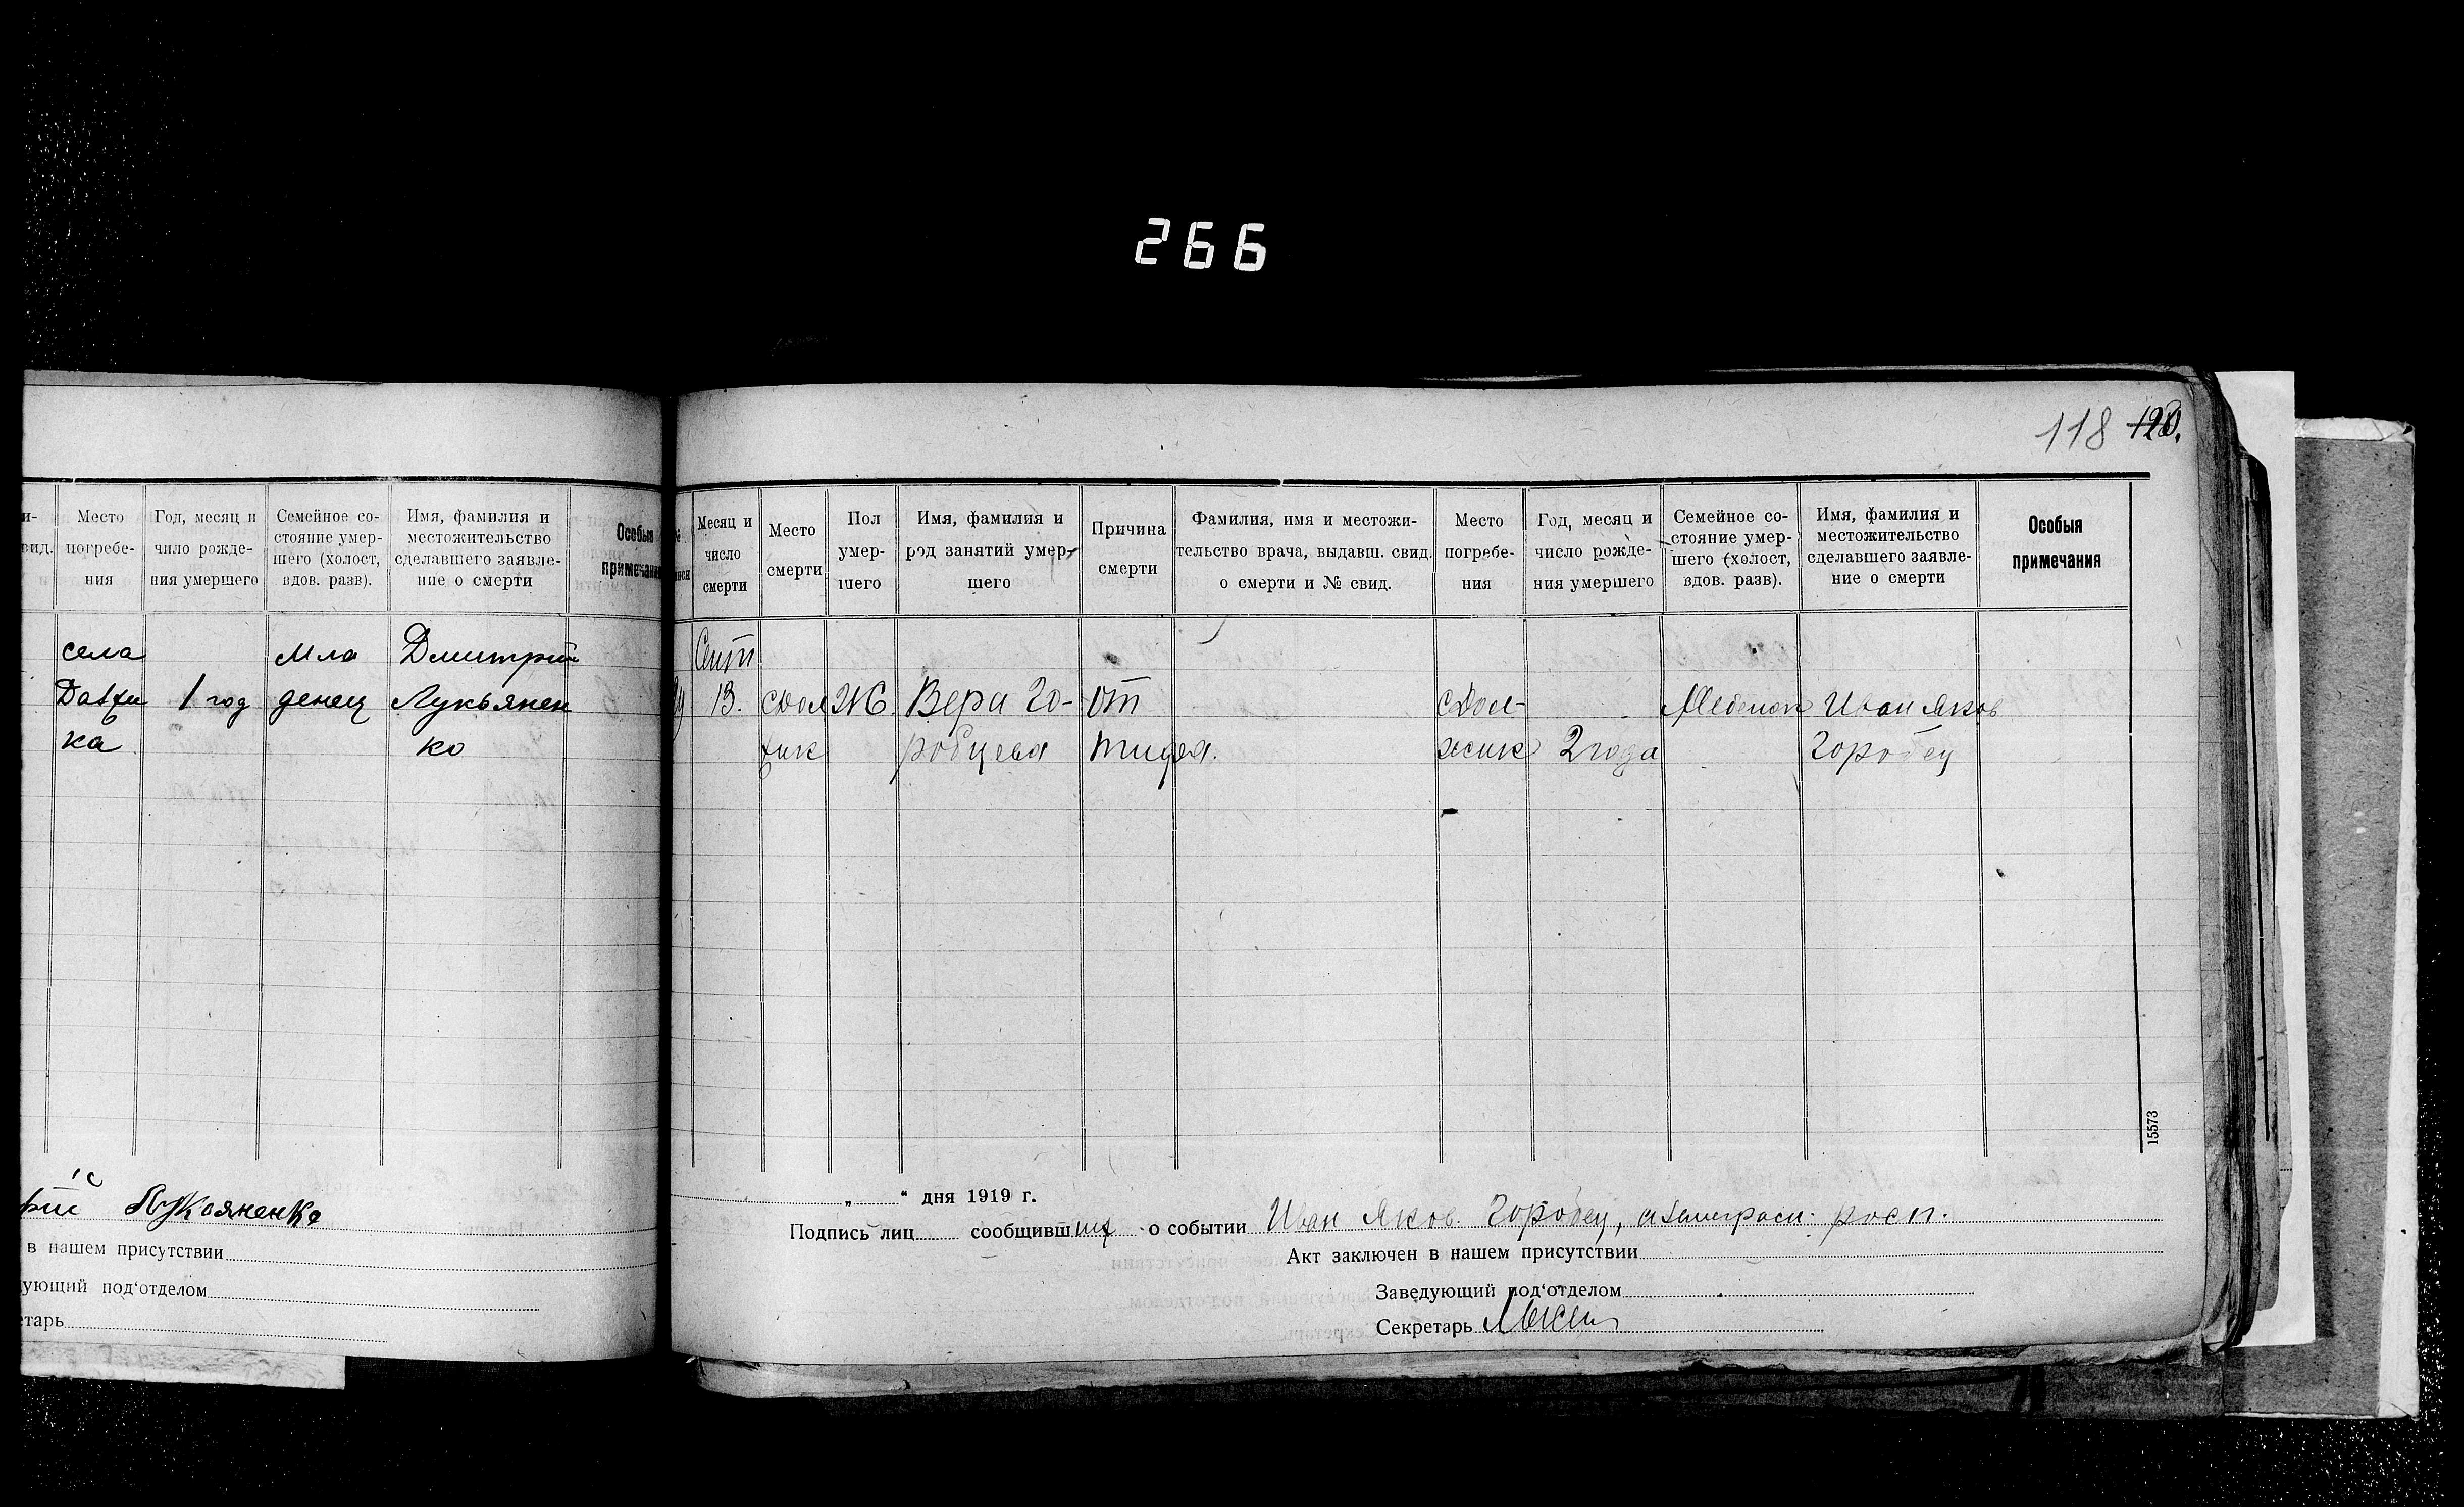 266
118 120.
Место погребе-ния
Год, месяц и чило рожде-ния умершего
Семейное со-стояние умер-шего (холост, вдов. разв).
Имя, фамилия и местожительство сделавшего заявле-ние о смерти
Особыя примечания
села
Мла
Дмитрий
1 год
денец
Лукьянен
ка
ко
Лукояненко
в нашем присутствии
ующий под'отделом
етарь
Месяц и число смерти
Место смерти
Пол умер-шего
Имя, фамилия и род занятий умер-шего
Причина смерти
Фамилия, имя и местожи-тельство врача, выдавш. свид. о смерти и № свид.
Место погребе-ния
Год, месяц и число рожде-ния умершего
Семейное со-стояние умер-шего (холост, вдов. разв).
Имя, фамилия и местожительство сделавшего заявле-ние о смерти
Особыя примечания
Сент
13. с Дол Ж. Вера Го- От с Дол- Иван Яков
жик робцева тифа. жик 2 года Горобец
15573
„ “ дня 1919 г.
Подпись лиц сообщивших о событии Иван Яков. Горобец,
Акт заключен в нашем присутствии
Заведующий под'отделом
Секретарь